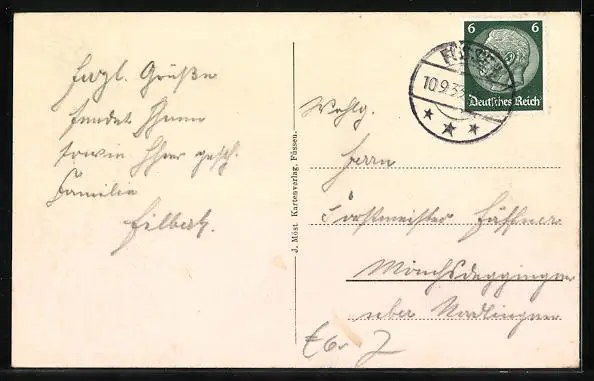 Herzl. Grüße
sendet Ihnen
sowie Ihrer gesch.
Familie
Hilbert.
J. Möst Kartenverlag, Füssen.
6 6
Deutsches Reich
FÜSSEN
10.9.33
Wohlg.
Herrn
Forstmeister Häffner
Mönchsdeggingen
über Nördlingen